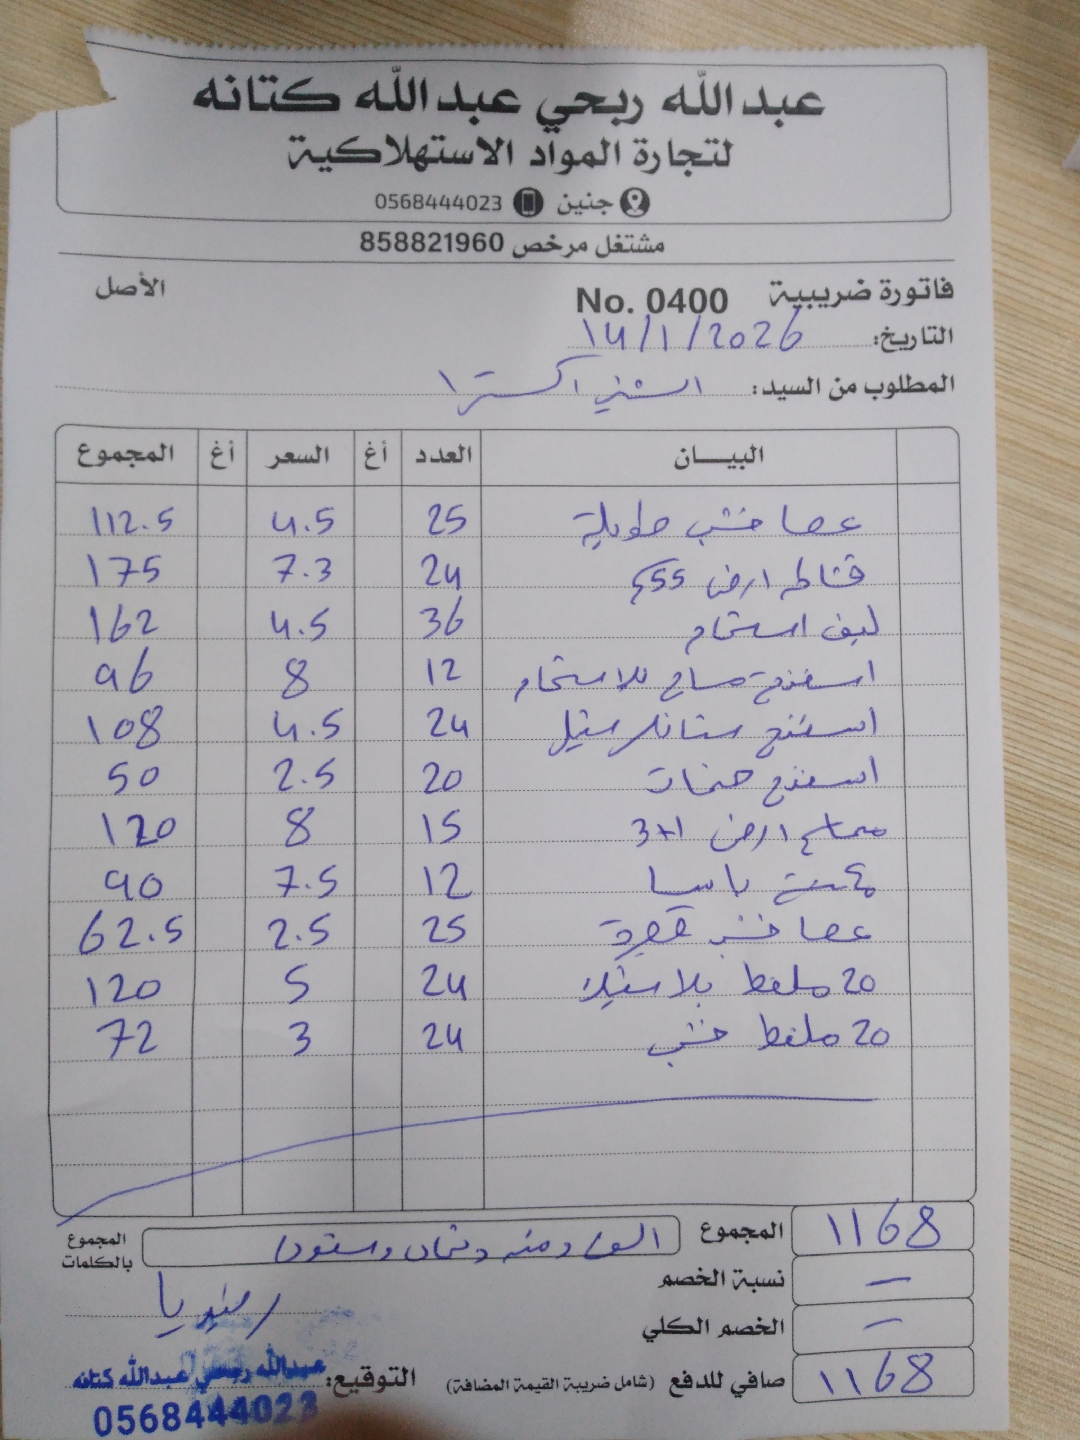 عبدالله ربحي عبدالله كتانه
لتجارة المواد الاستهلاكية
جنين 0568444023
مشتغل مرخص 858821960
فاتورة ضريبية No. 0400 الأصل
التاريخ: 14/1/2026
المطلوب من السيد: السنتر اكسترا
البيـــان العدد أغ السعر أغ المجموع
عصا خشب طويلة 25 4.5 112.5
قشاطة ارض 55 24 7.3 175
ليف استحمام 36 4.5 162
اسفنج مساج للاستحمام 12 8 96
اسفنج ستانلس ستيل 24 4.5 108
اسفنج 20 2.5 50
ارض 3+1 15 8 120
مكنسة 12 7.5 90
عصا خشب قصيرة 25 2.5 62.5
20 ملقط بلاستيك 24 5 120
20 ملقط خشب 24 3 72
المجموع 1168
المجموع بالكلمات الف ومئه وثمان وستون
نسبة الخصم –
الخصم الكلي –
صافي للدفع (شامل ضريبة القيمة المضافة) 1168
التوقيع:
عبدالله ربحي عبدالله كتانه
0568444023